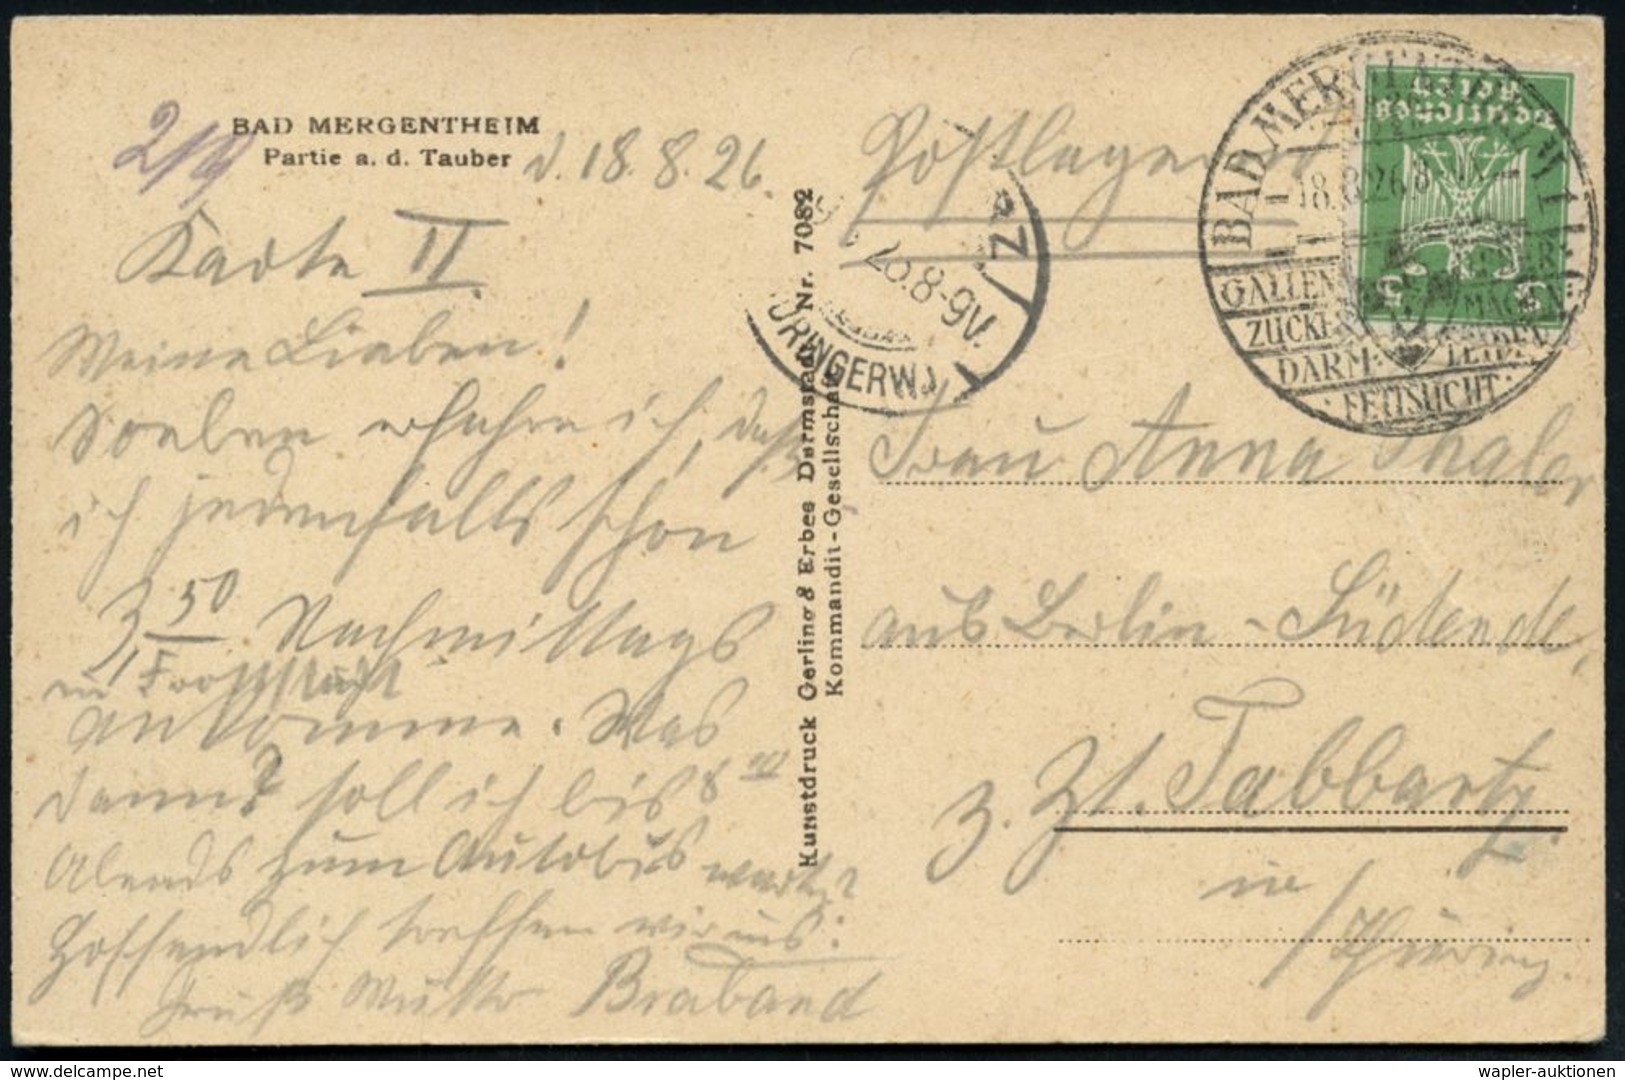 BAD MERGENTHEIM
Partie a. d. Tauber
d. 18. 8. 26.
Karte II.
Meine Lieben!
Soeben erfahre ich, daß
ich jedenfalls schon
3 50 Nachmittags
in Frottstädt
ankomme. Was
dann? soll ich bis 8
Abends zum Autobus warten?
Hoffendlich treffen wir uns.
Gruß Mutter Braband
Kunstdruck Gerling & Erbes Darmstadt Nr. 7082
Kommandit-Gesellschaft
26.8-9V.
Postlagernd
BAD MERGENTHEIM
18.8.26.8-
GALLEN
ZUCKER
DARM
FETTSUCHT
Deutsches
Reich
5 5
Frau Anna Thaler
aus Berlin-Südende,
z. Zt. Tabbartz
in /Thüring.
wapler-auktionen